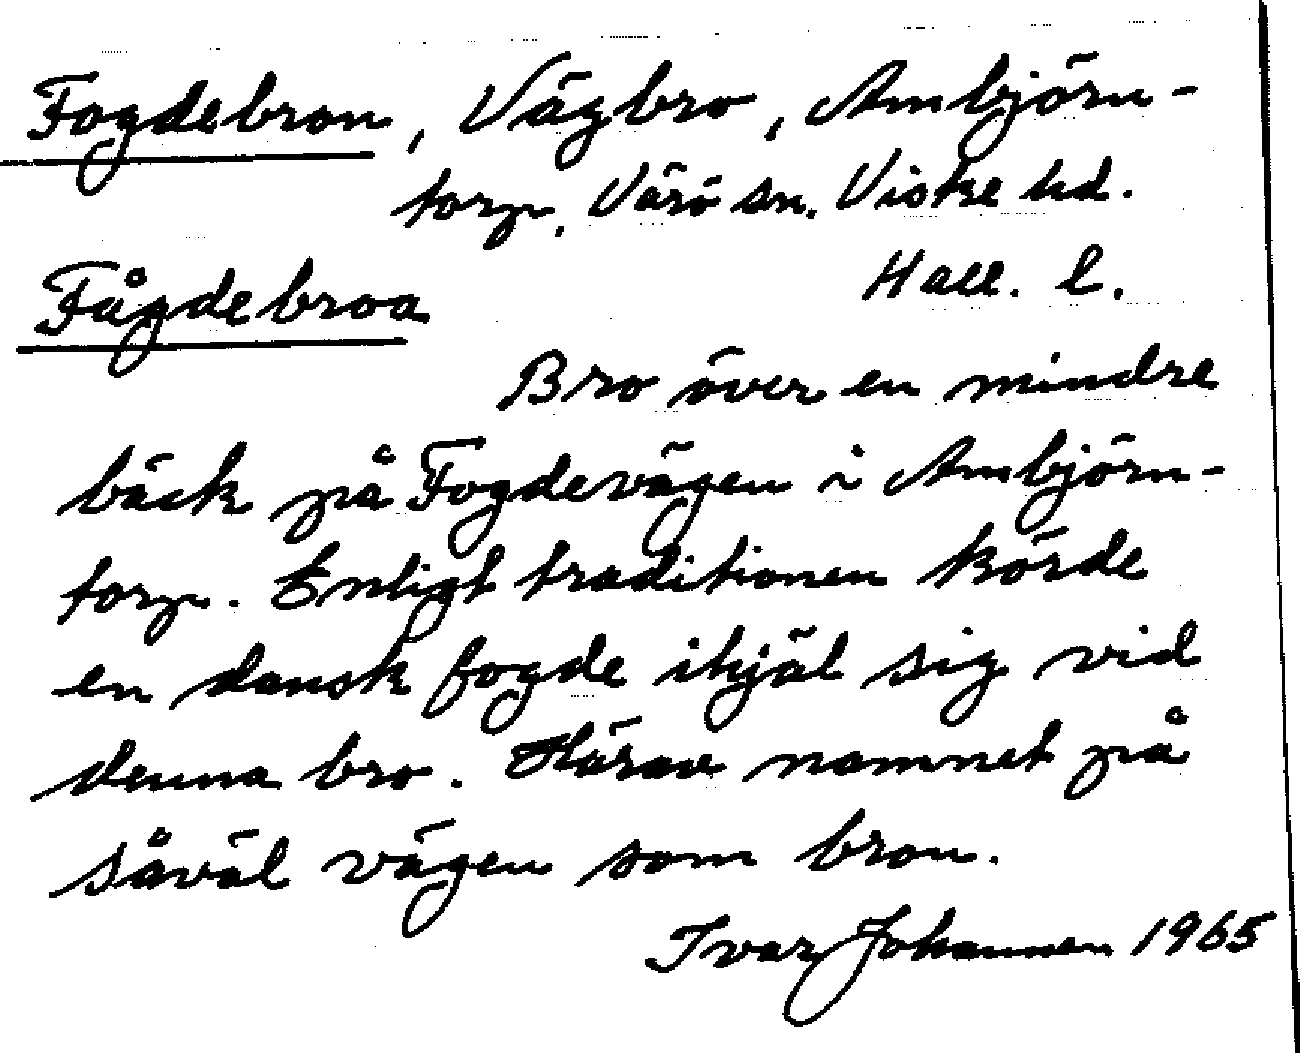 Fogdebron, Vägbro, Ambjörn-
torp. Värö sn. Viske hd.
Fågdebroa
Hall. l.
Bro över en mindre
bäck på Fogdevägen i Ambjörn-
torp. Enligt traditionen körde
en dansk fogde ihjäl sig vid
denna bro. Härav namnet på
såväl vägen som bron.
Ivar Johansson 1965